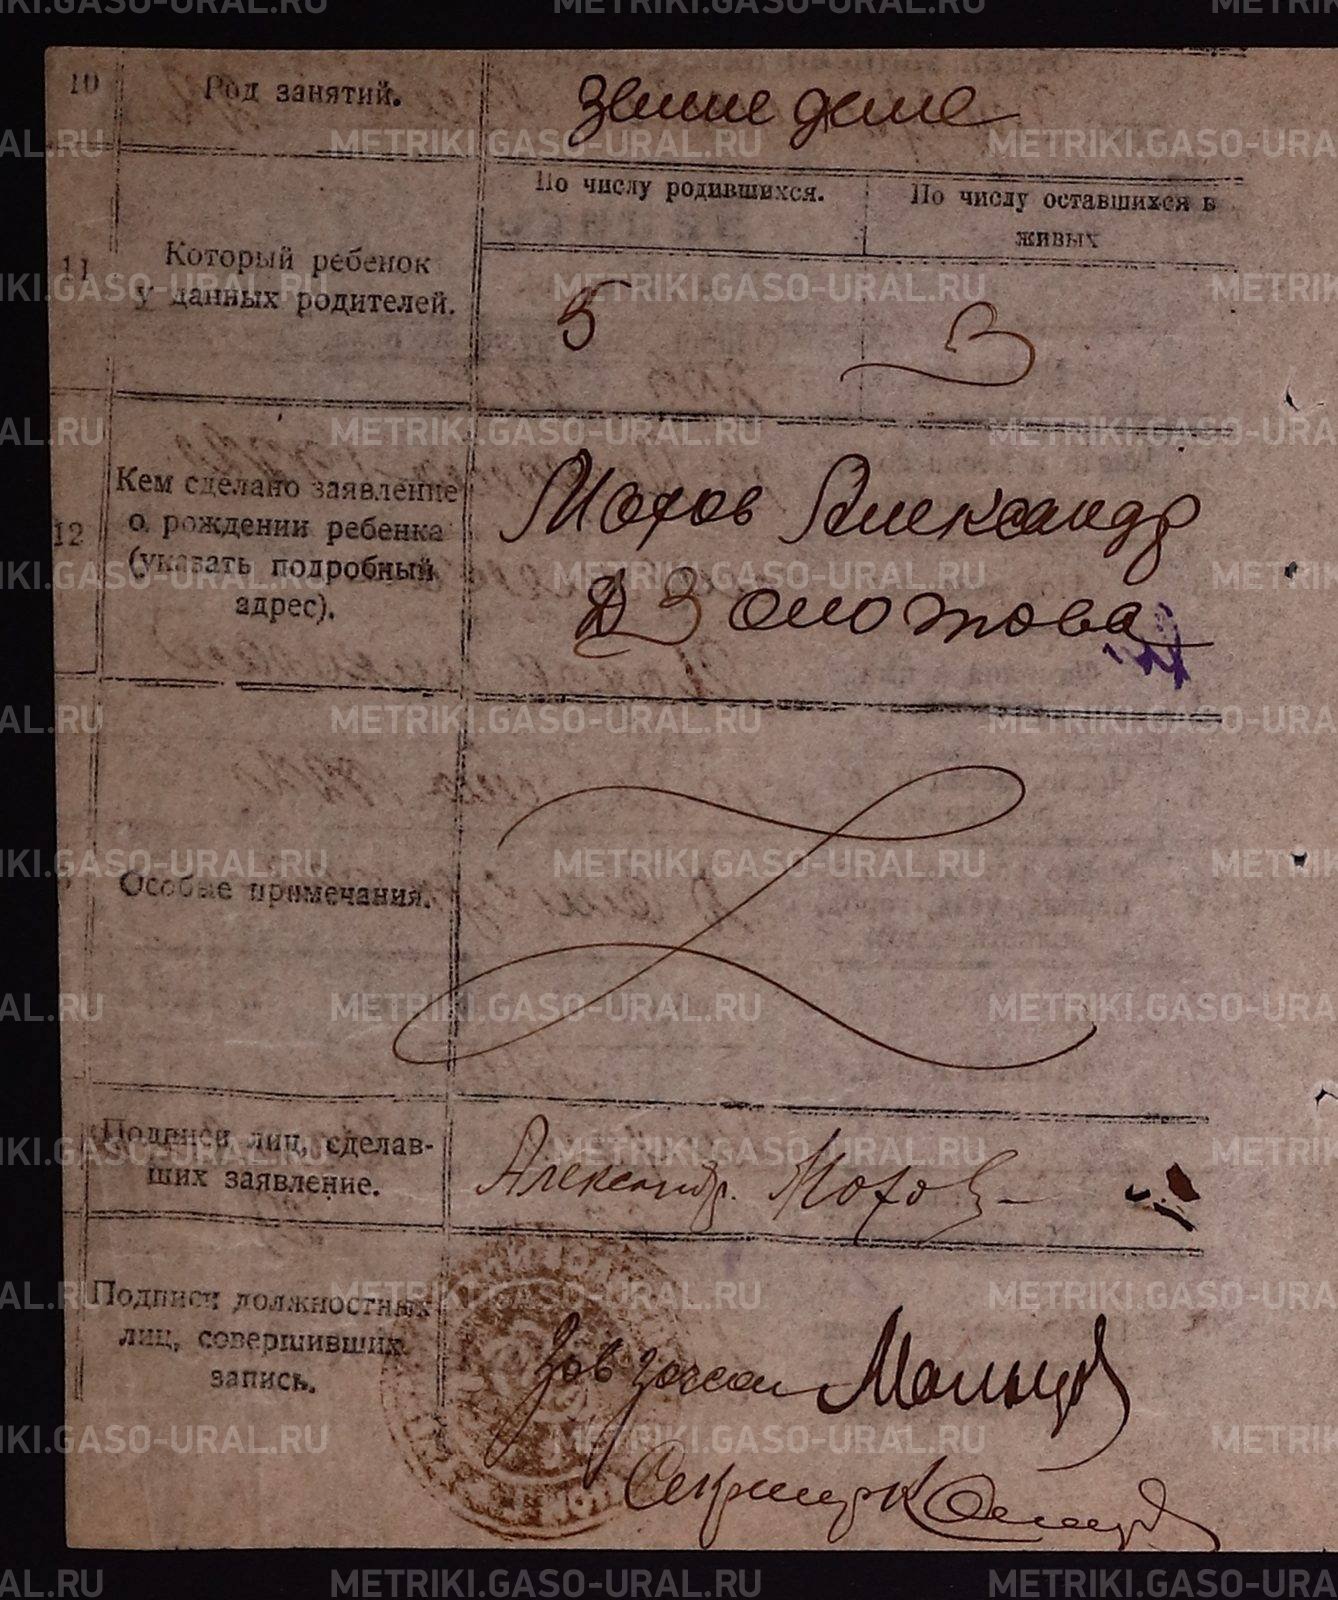 10 Род занятий. Земледелие
По числу родившихся. По числу оставшихся в
живых
11 Который ребенок
у данных родителей. 5 3
Кем сделано заявление Мохов Александр
12 о рождении ребенка
(указать подробный Д Золотова
адрес).
Особые примечания.
Подписи лиц, сделав-
ших заявление. Александр Мохов
Подписи должностных
лиц, совершивших Зав загсом Мальцев
запись.
METRIKI.GASO-URAL.RU